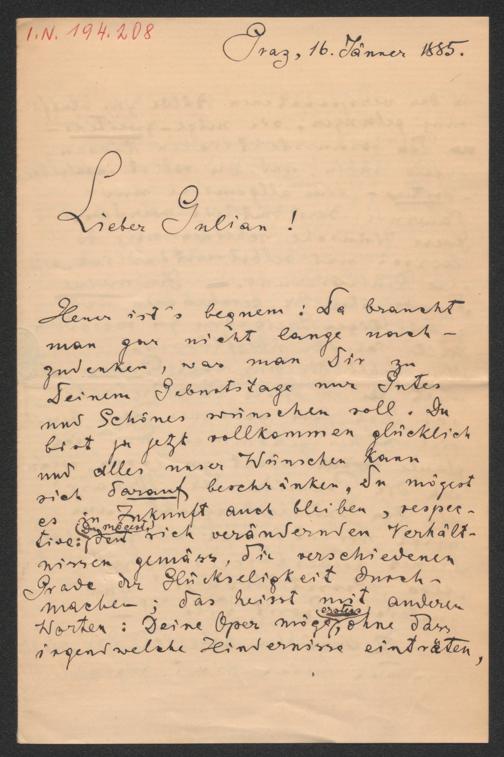 I.N. 194.208
Graz, 16. Jänner 1885.
Lieber Gulian!
Heuer ist's bequem: Da braucht
man gar nicht lange nach-
zudenken, was man Dir zu
Deinem Geburtstage nur Gutes
und Schönes wünschen soll. Du
bist ja jetzt vollkommen glücklich
und alles unser Wünschen kann
sich darauf beschränken, Du mögest
es in Zukunft auch bleiben, respec-
tive: Du mögest
den sich verändernden Verhält-
nissen gemäss, die verschiedenen
Grade der Glückseligkeit durch-
machen; das heisst mit anderen
Worten: Deine Oper möge erstens, ohne dass
irgendwelche Hindernisse einträten,